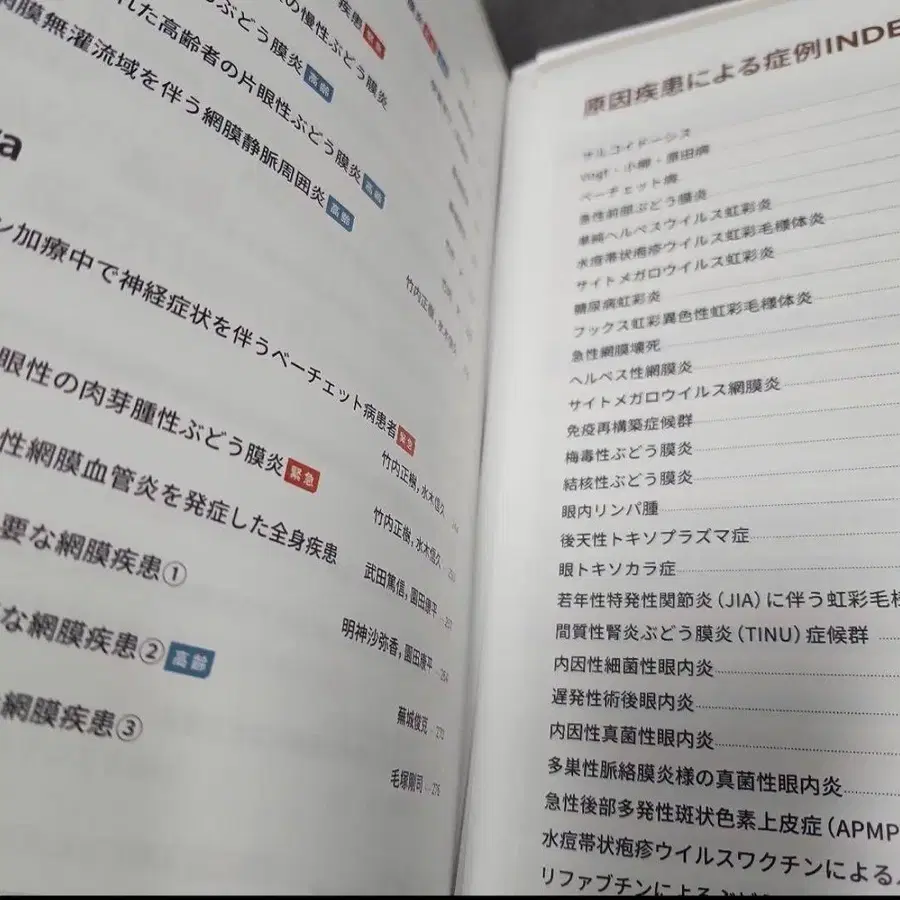 疾患 緊急
の慢性ぶどう膜炎
るぶどう膜炎 高齢
れた高齢者の片眼性ぶどう膜炎 高齢
網膜無灌流域を伴う網膜静脈周囲炎 高齢
竹内正樹, 水木信久
ン加療中で神経症状を伴うベーチェット病患者 緊急
竹内正樹, 水木信久
眼性の肉芽腫性ぶどう膜炎 緊急
竹内正樹, 水木信久
性網膜血管炎を発症した全身疾患
武田篤信, 園田康平
要な網膜疾患①
明神沙弥香, 園田康平 264
な網膜疾患② 高齢
蕪城俊克 270
網膜疾患③
毛塚剛司 276
原因疾患による症例INDE
サルコイドーシス
Vogt・小柳・原田病
ベーチェット病
急性前部ぶどう膜炎
単純ヘルペスウイルス虹彩炎
水痘帯状疱疹ウイルス虹彩毛様体炎
サイトメガロウイルス虹彩炎
糖尿病虹彩炎
フックス虹彩異色性虹彩毛様体炎
急性網膜壊死
ヘルペス性網膜炎
サイトメガロウイルス網膜炎
免疫再構築症候群
梅毒性ぶどう膜炎
結核性ぶどう膜炎
眼内リンパ腫
後天性トキソプラズマ症
眼トキソカラ症
若年性特発性関節炎(JIA)に伴う虹彩毛様
間質性腎炎ぶどう膜炎(TINU)症候群
内因性細菌性眼内炎
遅発性術後眼内炎
内因性真菌性眼内炎
多巣性脈絡膜炎様の真菌性眼内炎
急性後部多発性斑状色素上皮症(APMP
水痘帯状疱疹ウイルスワクチンによる
リファブチンによるぶど